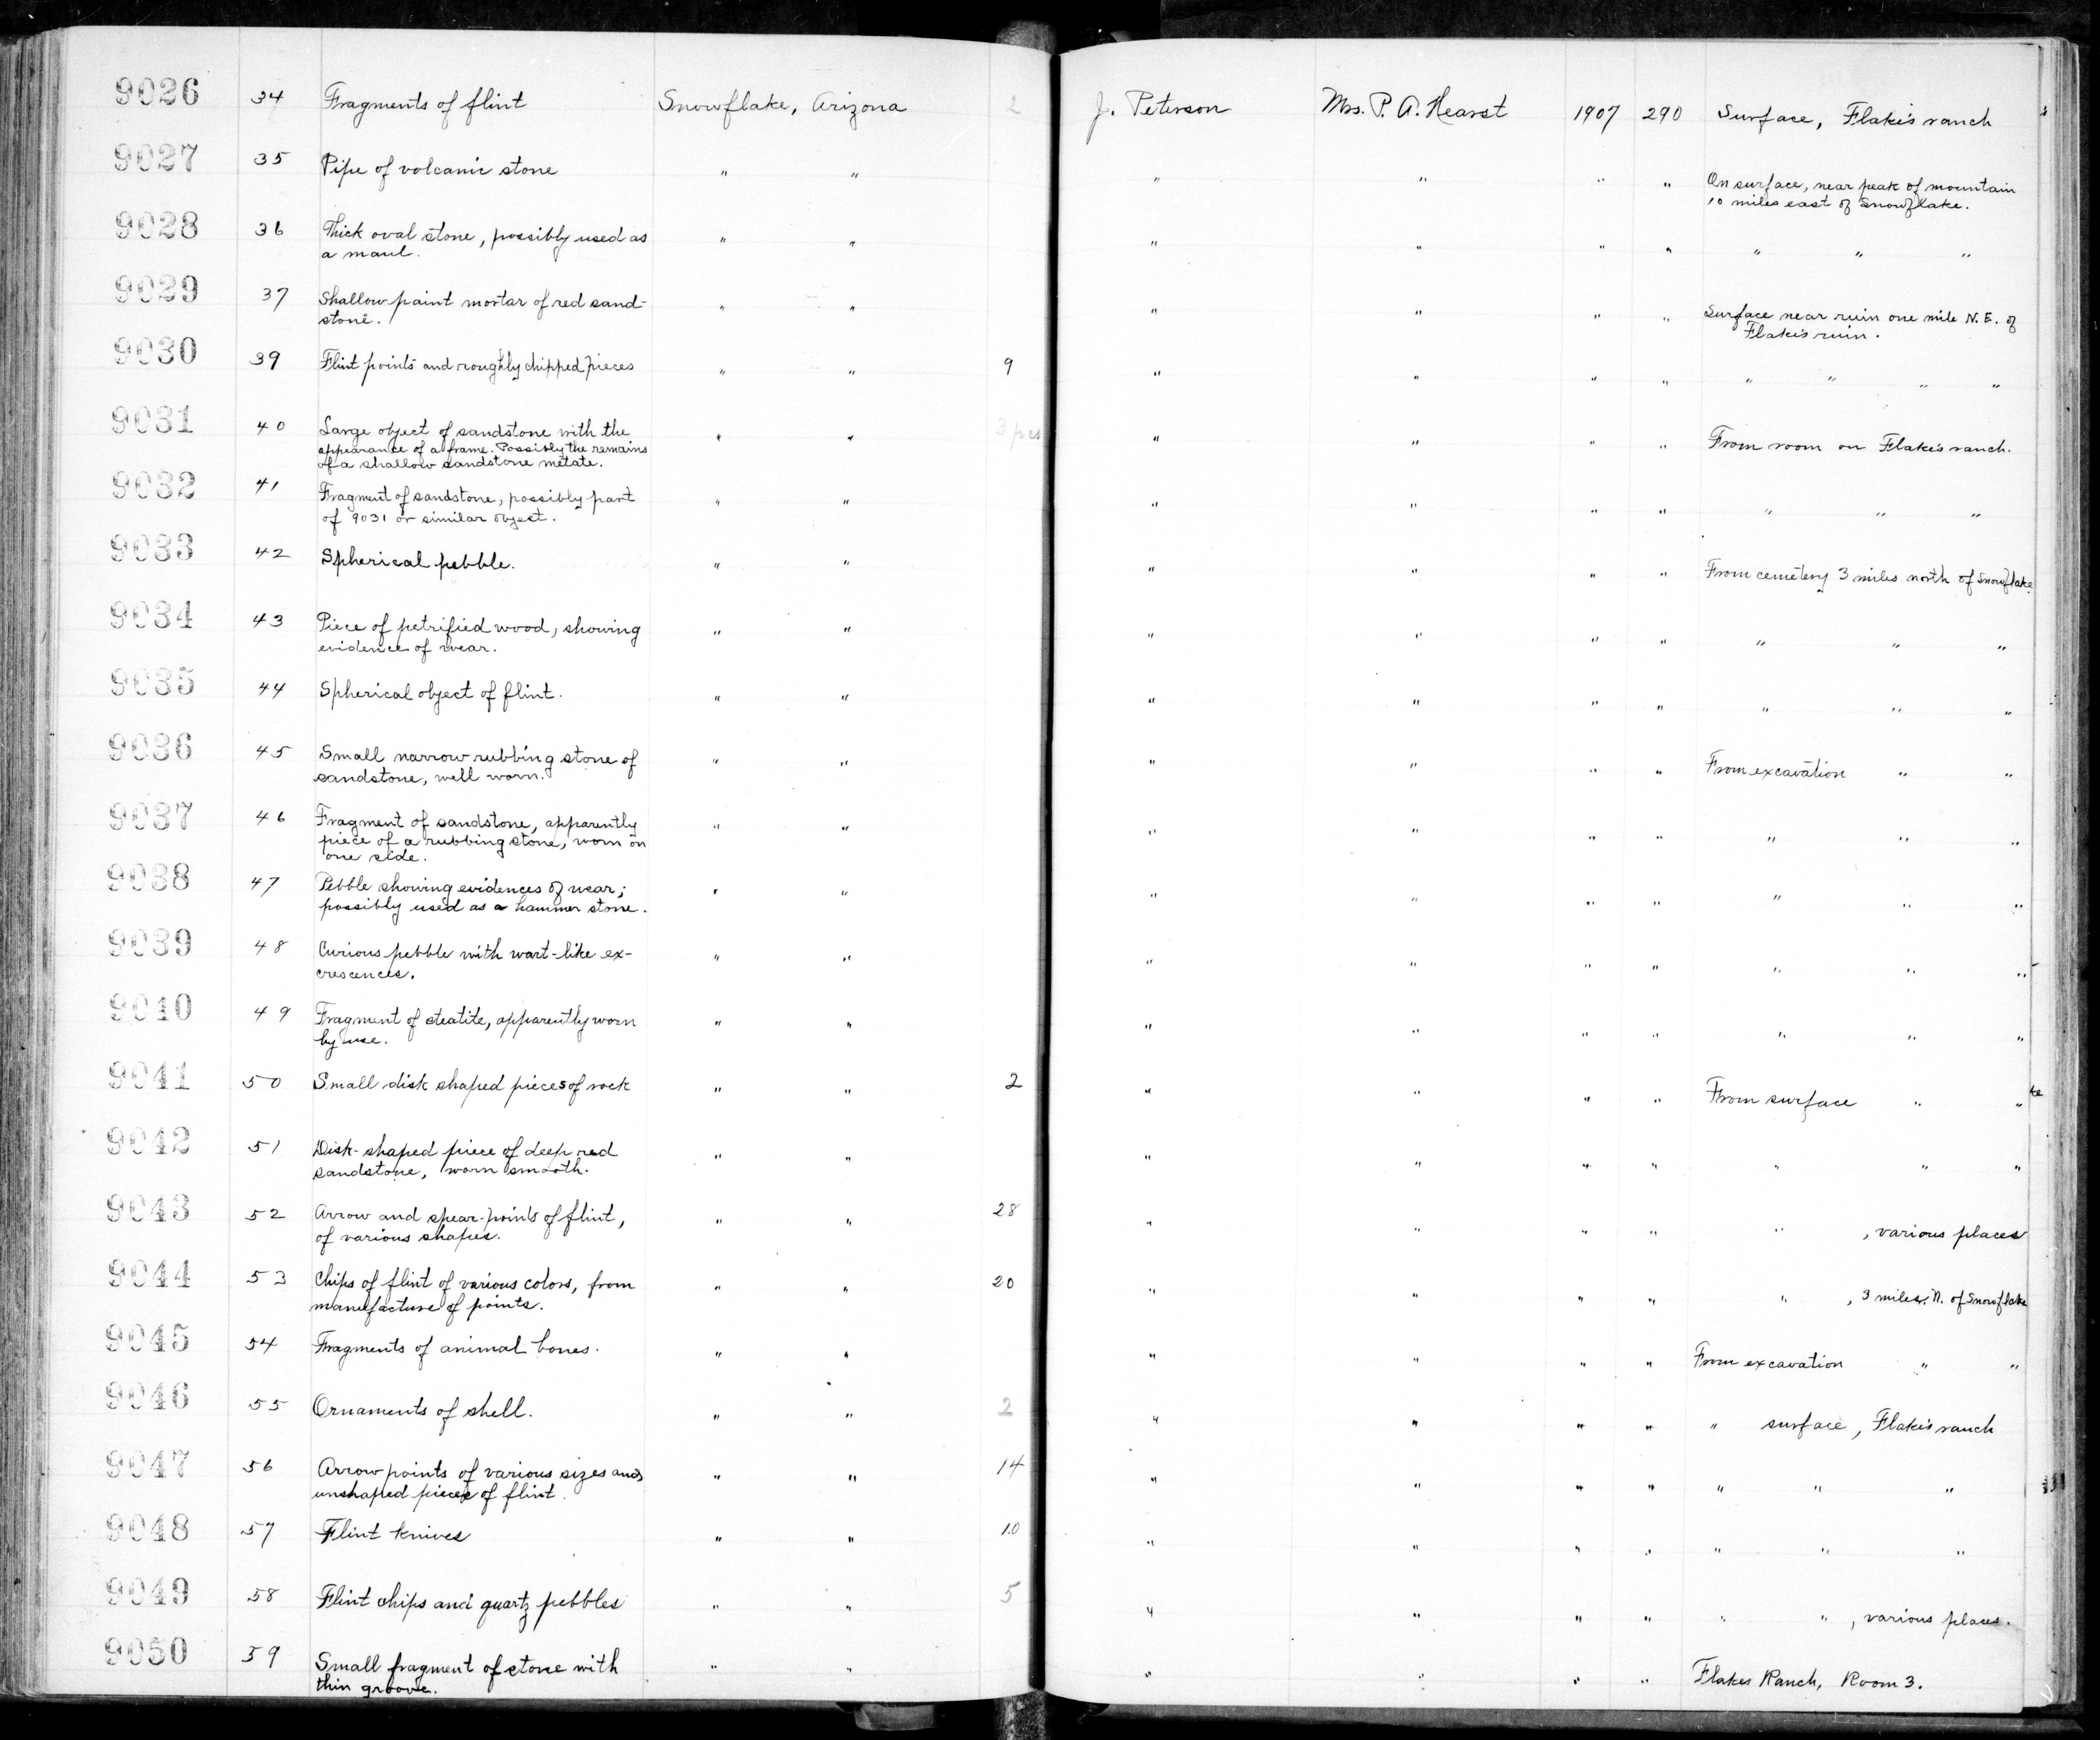 9026 34 Fragments of flint Snowflake, Arizona 2 J. Peterson Mrs. P. A. Hearst 1907 290 Surface, Flake's ranch
9027 35 Pipe of volcanic stone " " " " " " On surface, near peak of mountain
10 miles east of Snowflake.
9028 36 Thick oval stone, possibly used as " " " " " " " " "
a maul.
9029 37 Shallow paint mortar of red sand- " " " " " " Surface near ruin one mile N.E. of
stone. Flake's ruin.
9030 39 Flint points and roughly chipped pieces " " 9 " " " " " " " "
9031 40 Large object of sandstone with the " " 3 pcs " " " " From room on Flake's ranch.
appearance of a frame. Possibly the remains
of a shallow sandstone metate.
9032 41 Fragment of sandstone, possibly part " " " " " " " " "
of 9031 or similar object.
9033 42 Spherical pebble. " " " " " " From cemetery 3 miles north of Snowflake
9034 43 Piece of petrified wood, showing " " " " " " " " "
evidence of wear.
9035 44 Spherical object of flint. " " " " " " " " "
9036 45 Small narrow rubbing stone of " " " " " " From excavation " "
sandstone, well worn.
9037 46 Fragment of sandstone, apparently " " " " " " " " "
piece of a rubbing stone, worn on
one side.
9038 47 Pebble showing evidences of wear; " " " " " " " " "
possibly used as a hammer stone.
9039 48 Curious pebble with wart-like ex- " " " " " " " " "
crescences.
9040 49 Fragment of steatite, apparently worn " " " " " " " " "
by use.
9041 50 Small disk shaped pieces of rock " " 2 " " " " From surface " "
9042 51 Disk-shaped piece of deep red " " " " " " " " "
sandstone, worn smooth.
9043 52 Arrow and spear-points of flint, " " 28 " " " " " , various places
of various shapes.
9044 53 Chips of flint of various colors, from " " 20 " " " " " , 3 miles N. of Snowflake
manufacture of points.
9045 54 Fragments of animal bones. " " " " " " From excavation " "
9046 55 Ornaments of shell. " " 2 " " " " " surface, Flake's ranch
9047 56 Arrow points of various sizes and " " 14 " " " " " " "
unshaped pieces of flint.
9048 57 Flint knives " " 10 " " " " " " "
9049 58 Flint chips and quartz pebbles " " 5 " " " " " " , various places.
9050 59 Small fragment of stone with " " " " " " Flakes Ranch, Room 3.
thin groove.